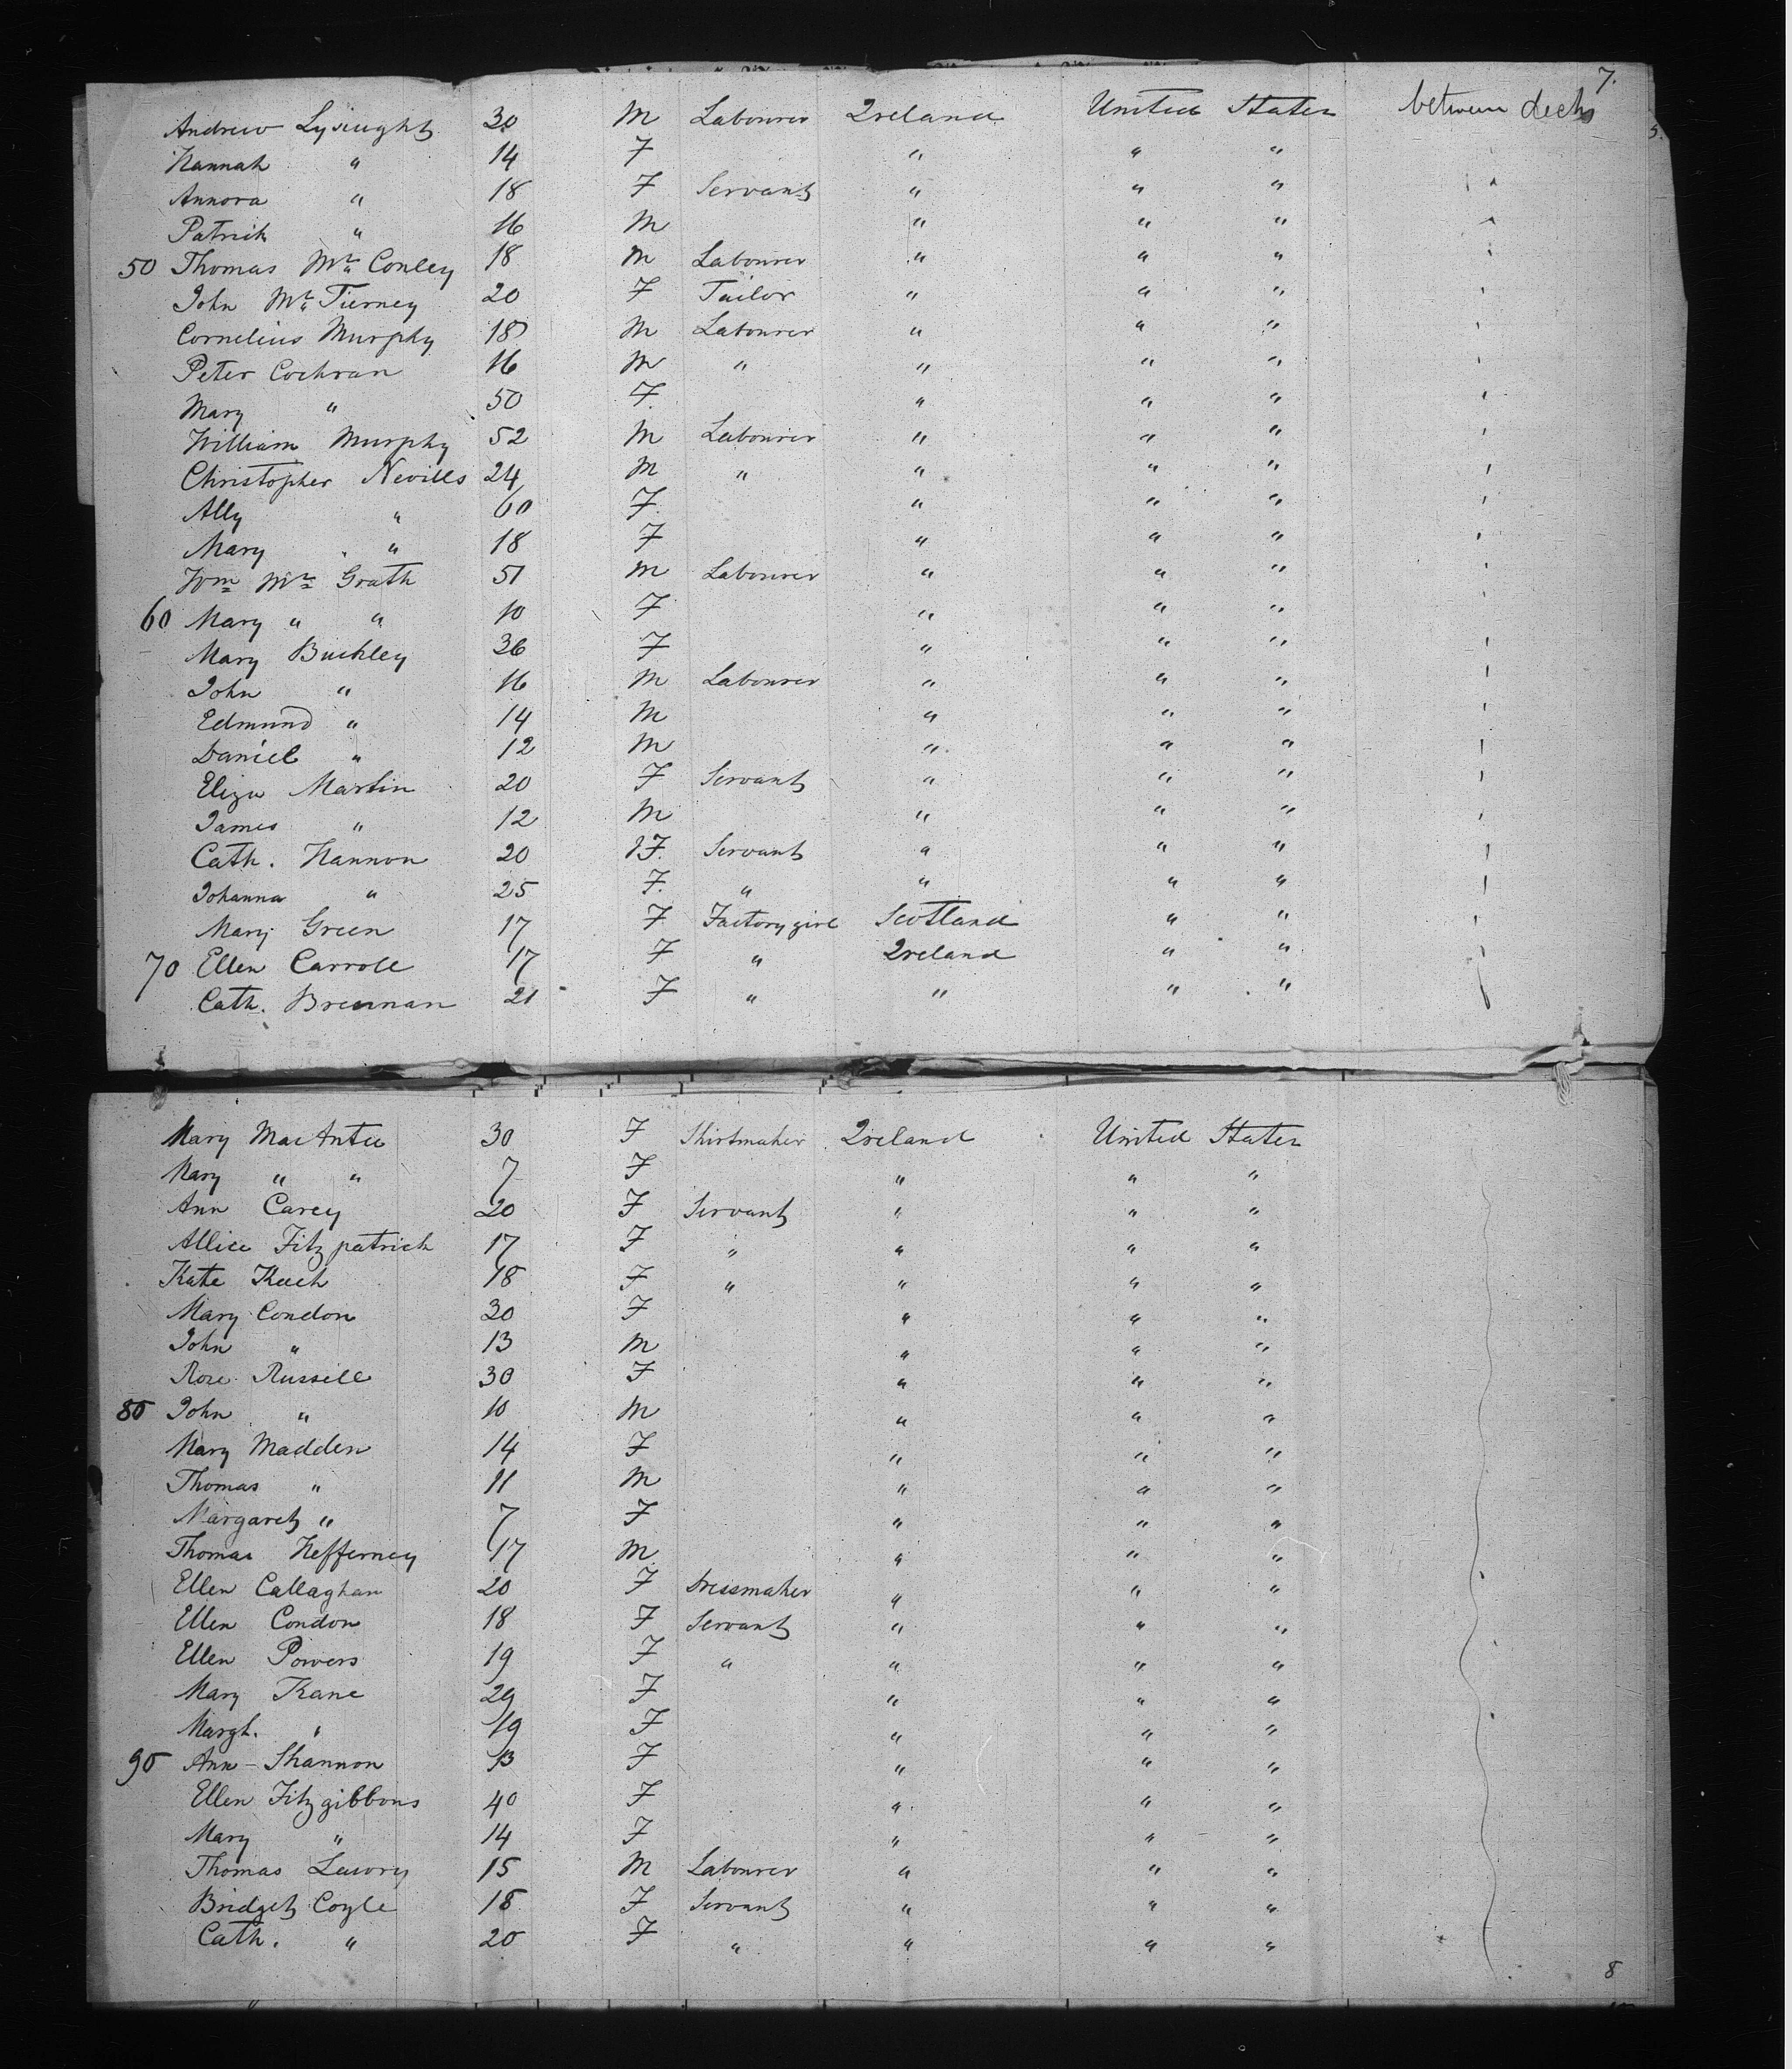 7.
Andrew Lysaught 30 M Labourer Ireland United States between decks
Hannah " 14 F " " "
Annora " 18 F Servant " " "
Patrick " 16 M " " "
50 Thomas Mc Conley 18 M Labourer " " "
John Mc Tierney 20 F Tailor " " "
Cornelius Murphy 18 M Labourer " " "
Peter Cochran 16 M " " " "
Mary " 50 F. " " "
William Murphy 52 M Labourer " " "
Christopher Nevills 24 M " " " "
Ally " 60 F " " "
Mary " 18 F " " "
Wm Mc Grath 51 M Labourer " " "
60 Mary " " 10 F " " "
Mary Buckley 36 F " " "
John " 16 M Labourer " " "
Edmund " 14 M " " "
Daniel " 12 M " " "
Eliza Martin 20 F Servant " " "
James " 12 M " " "
Cath. Hannon 20 F. Servant " " "
Johanna " 25 F. " " " "
Mary Green 17 F Factory girl Scotland " "
70 Ellen Carroll 17 F " Ireland " "
Cath. Brennan 21 F " " " "
Mary MacAntee 30 F Shirtmaker Ireland United States
Mary " " 7 F " " "
Ann Carey 20 F Servant " " "
Allice Fitzpatrick 17 F " " " "
Kate Keech 18 F " " " "
Mary Condon 30 F " " "
John " 13 M " " "
Rose Russell 30 F " " "
80 John " 10 M " " "
Mary Madden 14 F " " "
Thomas " 11 M " " "
Margaret " 7 F " " "
Thomas Hefferney 17 M " " "
Ellen Callaghan 20 F Dressmaker " " "
Ellen Condon 18 F Servant " " "
Ellen Powers 19 F " " " "
Mary Kane 29 F " " "
Margt. " 19 F " " "
90 Ann Shannon 13 F " " "
Ellen Fitzgibbons 40 F " " "
Mary " 14 F " " "
Thomas Lawry 15 M Labourer " " "
Bridget Coyle 18 F Servant " " "
Cath. " 20 F " " " "
8